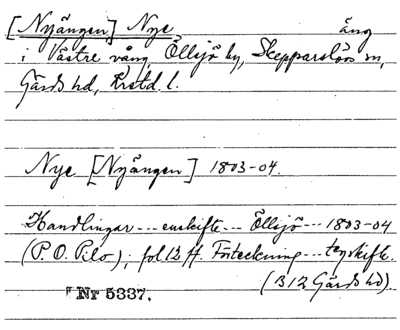 [Nyängen] Nye äng
i Västre vång, Öllsjö by, Skepparslövs sn,
Gärds hd, Krstd. l.
Nye [Nyängen] 1803-04.
Handlingar --- enskifte --- Öllsjö --- 1803-04
(P. O. Pilo); fol 12 ff. Förteckning --- tegskifte.
(B 12 Gärds hd).
Nr 5337.